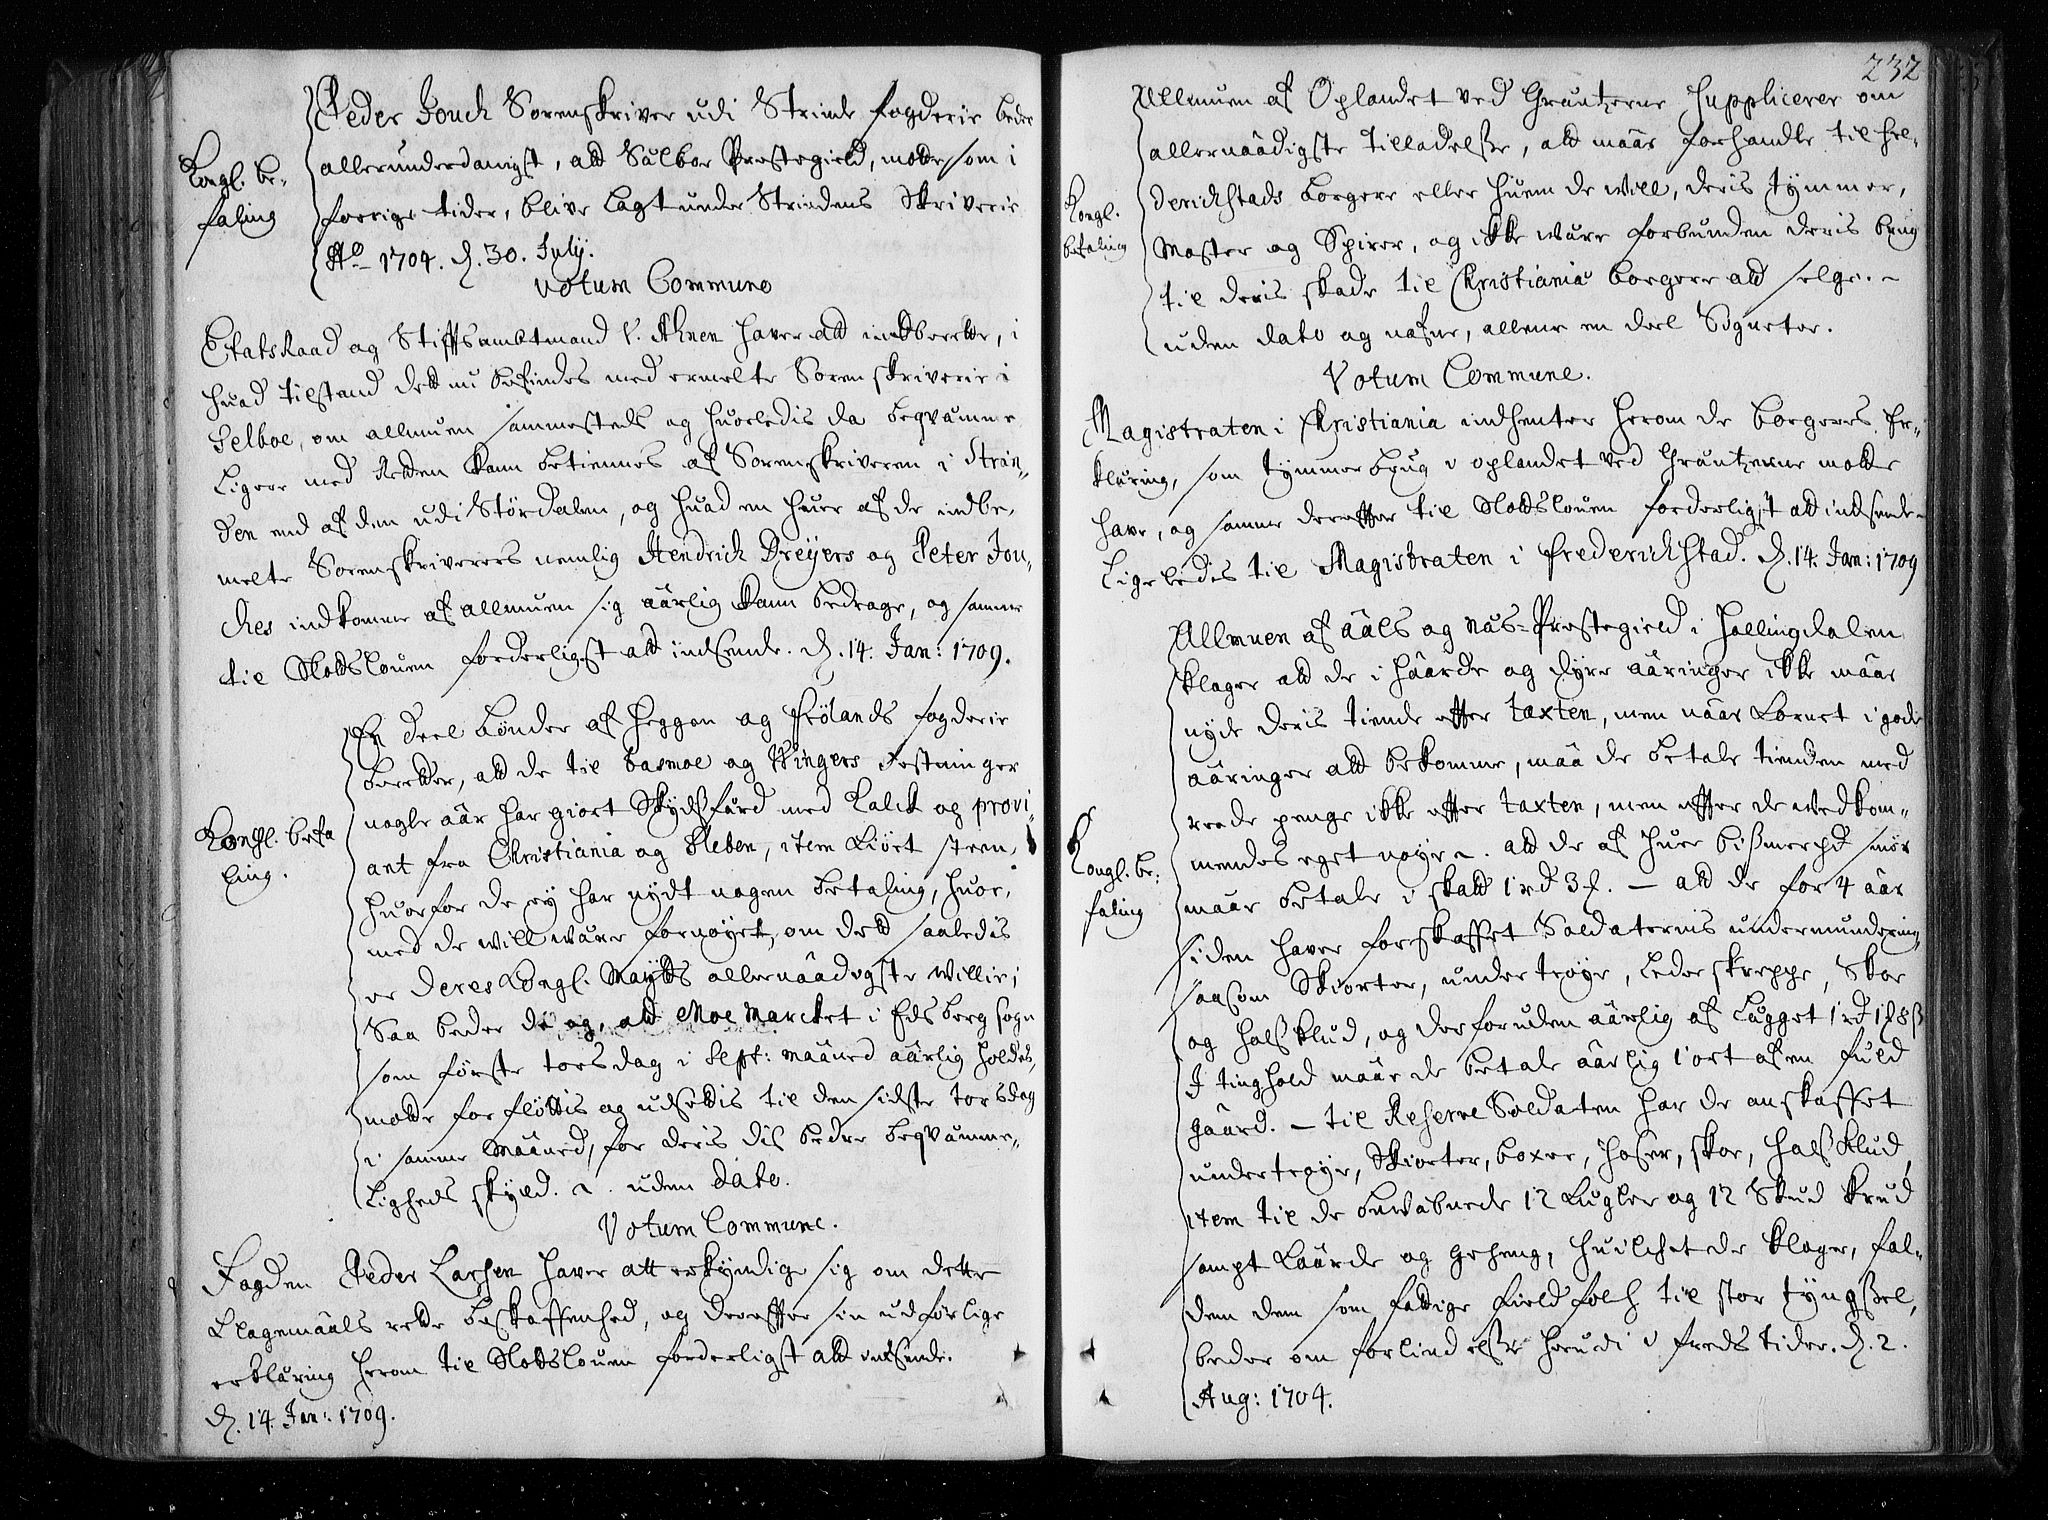 Peder Jouch Sorenskriver udi Strinde fogderie beder
allerunderdanigst, ald Sælboe Præstegield, motte som i
Kongl. be-
faling
forrige tider, blive lagt under Strindens Skriverie
Ao 1704. d. 30. July.
Votum Commune
EtatsRaad og Stifftsambtmand v. Ahnen haver ald indberette, i
huad tilstand dett nu befindes med ermelte Sorenskriverie i
Selboe, om allmuen sammesteds og huorledis da beqvæmme
ligere med Retten kann betiennes af Sorenskriveren i Strin-
den end af den udi Størdalen, og huad en huer af de indbe-
melte Sorenskriverers nemlig Hendrich Dreyers og Peter Jou-
ches indkomme af allmuen sig aarlig kann bedrage, og samme
til Slotsloven forderligst ald indsende. d. 14. Jan: 1709.
En deel bønder af Heggen og Frølands fogderie
beretter, ald de til Basmoe og Wingers Festninger
nogle aar har giort Skydsfærd med Kalck og provi-
Kongl. befa
ling.
ant fra Christiania og Kleben, item kiørt steen,
huorfor de ey har nydt nogen betaling, huor-
med de will være fornøyet, om dett saaledis
er Deres Kongl. Maytts allernaadigste Willie;
Saa beder de og, ald Moe Marcket i Edsberg sogn
som første torsdag i Sept: maaned aarlig holdes,
motte forfløttis og udsettis til den sidste torsdag
i samme Maaned, for deris dis bedre beqvæmme-
ligheds skyld. uden dato.
Votum Commune.
Fogden Peder Larsen haver att erkyndige sig om dette
Klagemaals rette beskaffenhed, og dereffter sin udførlige
erklæring herom til Slotsloven forderligst ald indsende.
d. 14. Jan: 1709.
232
Allmuen af Oplandet ved Græntzerne supplicerer om
allernaadigste tilladelse, ald maae forhandle til Fre-
Kongl.
befaling
derichstads borgere eller huem de will, deris tymmer,
Master og Spirer, og ikke være forbunden deris brug
til deris skade til Christiania borgere ald selge.
uden dato og nafne, allene en deel Signeter.
Votum Commune.
Magistraten i Christiania indhenter herom de borgeres Er-
klæring, som tymmerbrug i oplandet ved Græntzerne motte
have, og samme dereffter til Slotsloven forderligst ald indsende
Ligeledis til Magistraten i Frederichstad. d. 14. Jan: 1709
Allmuen af Aals og Næs Præstegield i Hallingdalen
klager ald de i haarde og dyre aaringer ikke maae
nyde deris tiende effter taxten, men naar kornet i gode
aaringer ald bekomme, maa de betale tienden med
reede penge ikke effter taxten, men effter de vedkom-
Kongl. be-
faling
mendes eget nøye. ald de af huer bismerpd smør
maae betale i skatt 1 rd 3 ß. – ald de for 4 aar
siden haver forskaffet Soldaternis undermundering,
saasom Skiorter, undertrøye, lederskreppe, Skoe
og halsklud, og derforuden aarlig af Lægget 1 rd 1 ß 8 ß
I tinghold maae de betale aarlig 1 ort af en fuld
gaard. – til Reserve Soldaten har de anskaffet
undertrøye, Skiorter, boxer, hoser, skoe, halsklud,
item til de bevæbnede 12 Kugler og 12 Skud krud
sampt kaarde og geheng, huilchet de klager, fal-
der dem som fattige fieldfolch til stor tyngsel,
beder om forlindelse herudi i freds tider. d. 2.
Aug: 1704.